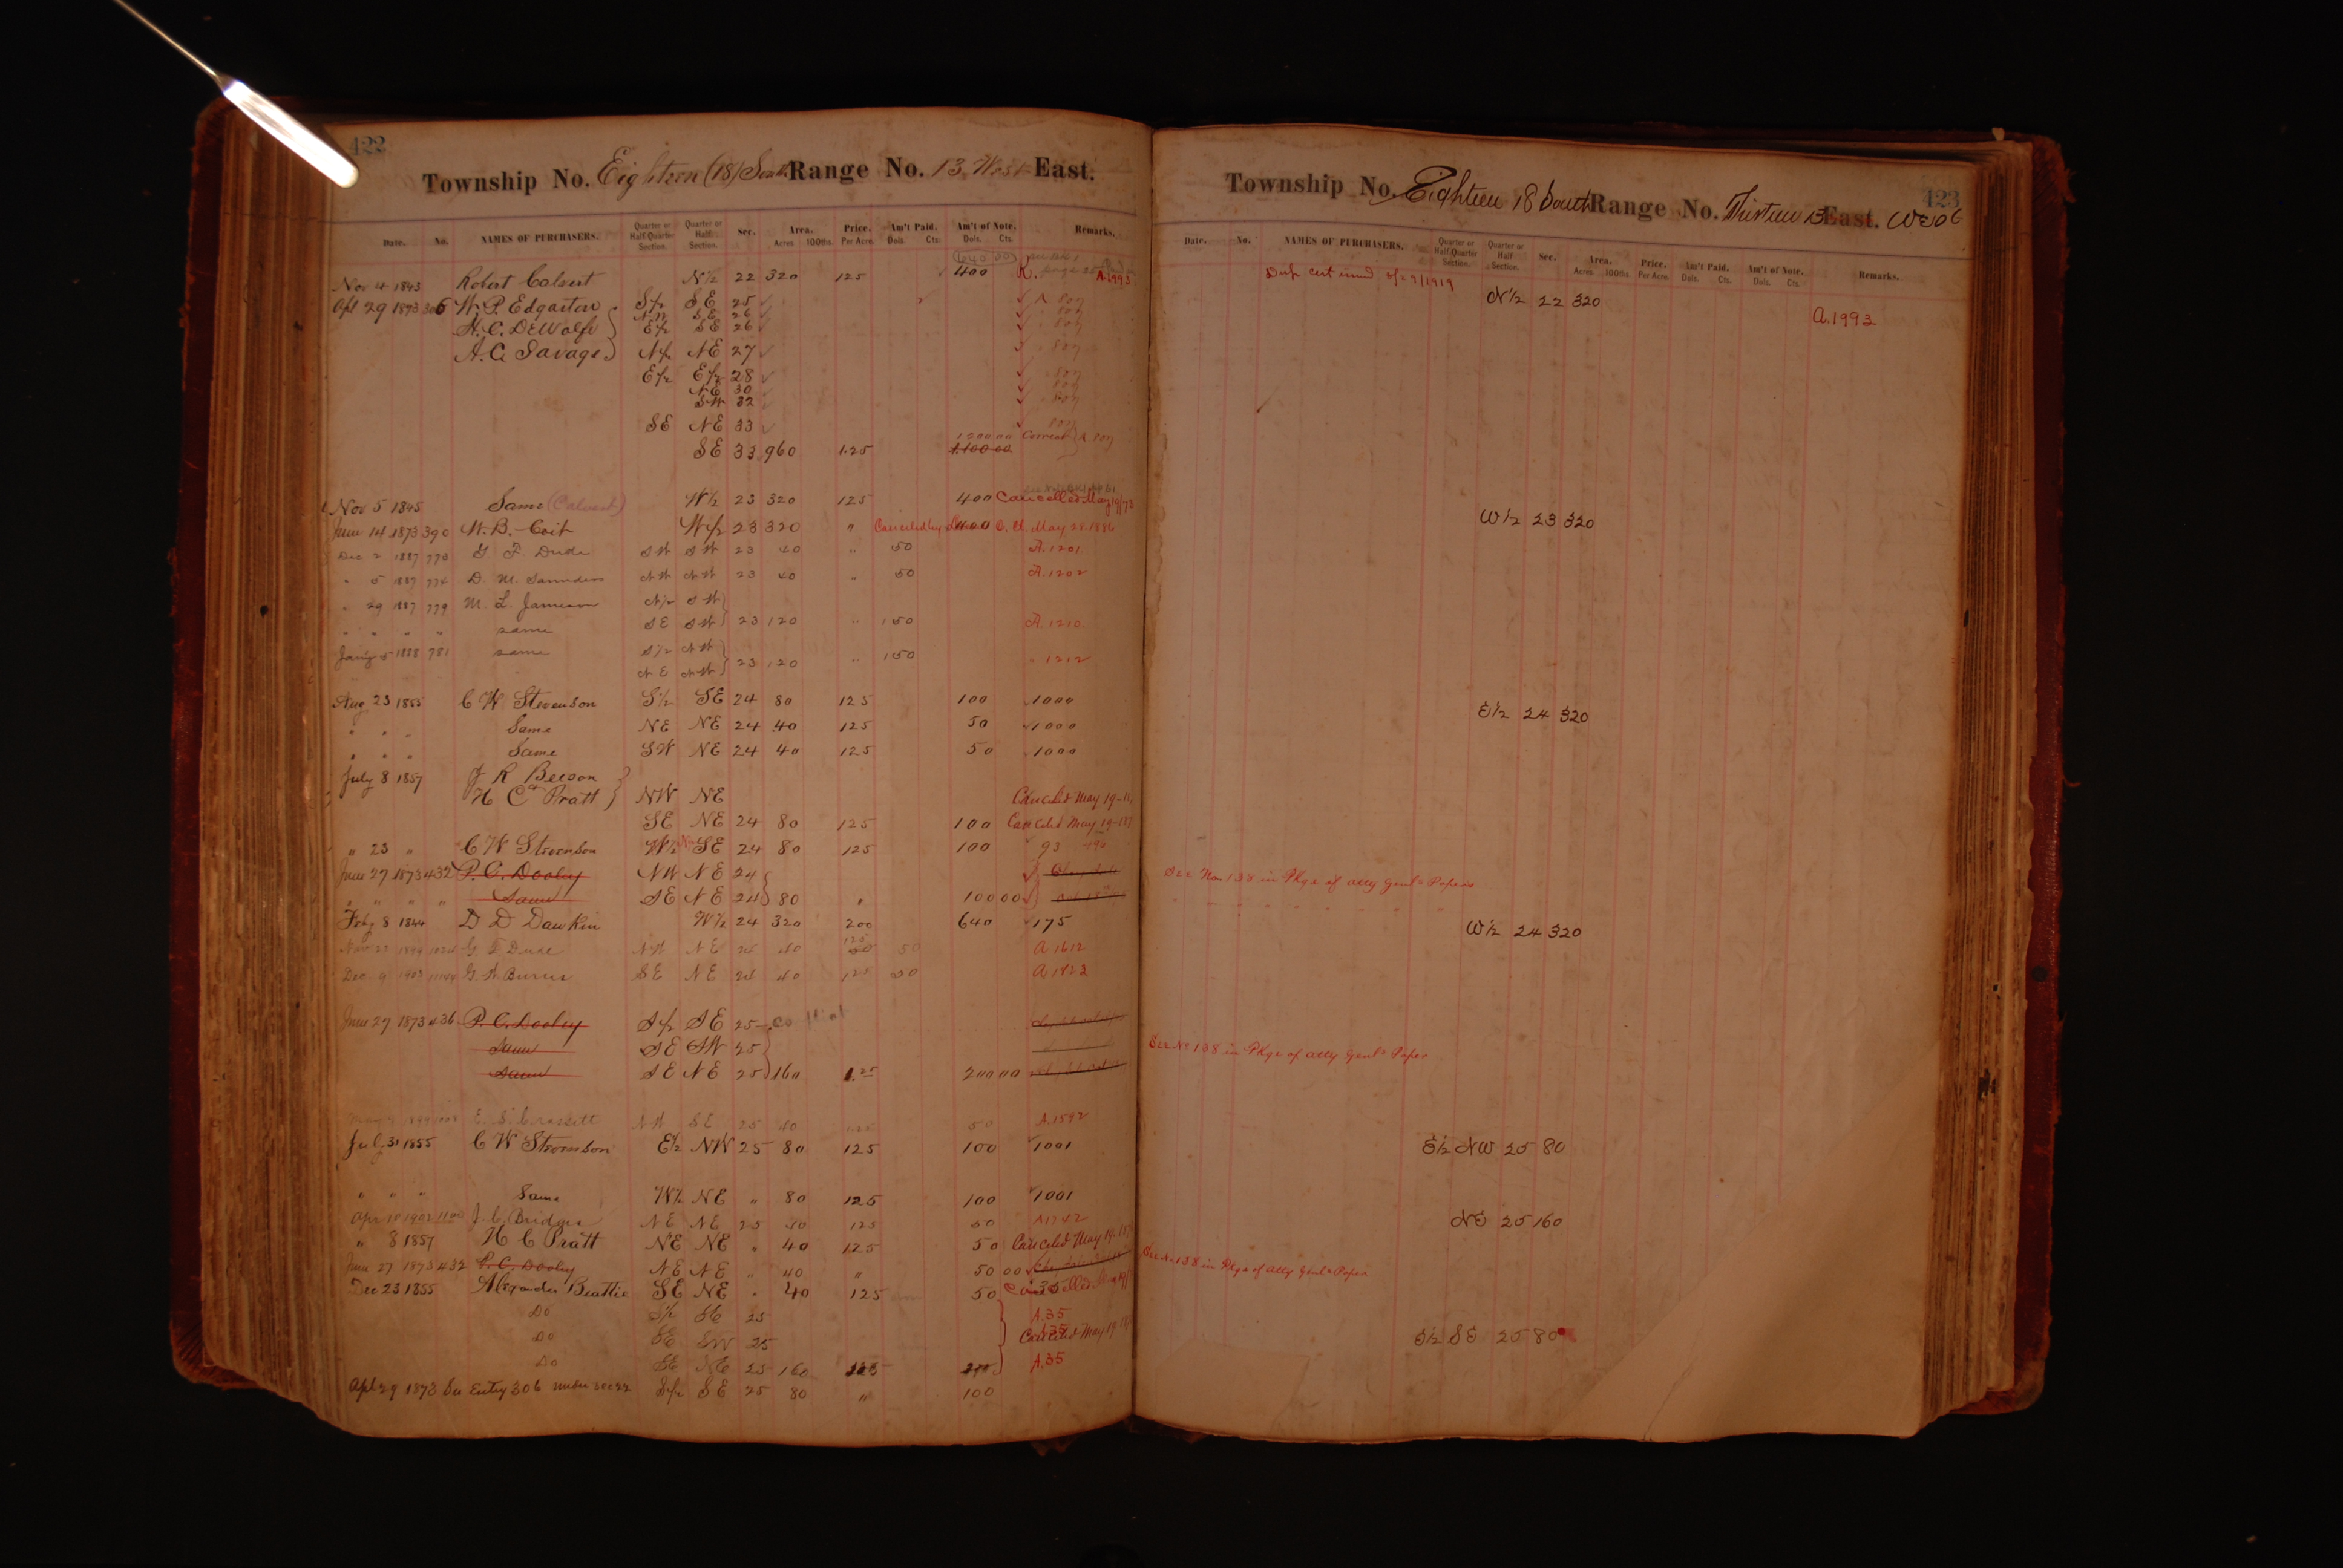 422
Township No. Eighteen (18) South Range No. 13 West East.
Date. No. NAMES OF PURCHASERS. Quarter or Half Quarter Section. Quarter or Half Section. Sec. Area. Acres 100ths. Price. Per Acre. Am't Paid. Dols. Cts. Am't of Note. Dols. Cts. Remarks.
Nov 4 1843 Robert Calvert N½ 22 320 125 400 R. A.1993
Apl 29 1873 306 W. P. Edgarton S½ SE 25
H. C. DeWolfe NW SE 26
E½ SE 26
A. C. Savage N½ NE 27
E½ E½ 28
NE 30
SW 32
SE NE 33
1200 00 Correct
SE 33 960 1.25 1100 00
Nov 5 1845 Same (Calvert) W½ 23 320 125 400 Cancelled May 19/73
June 14 1873 390 W. B. Coit W½ 23 320 " 400 May 28. 1886
Dec 2 1887 773 G. F. Dude SW SW 23 40 " 50 A.1201
" 5 1887 774 D. M. Saunders NW NW 23 40 " 50 A.1202
" 29 1887 779 M. L. Jameson N½ SW
" " " " same SE SW 23 120 " 150 A.1210
Jany 5 1888 781 same S½ NW
NE NW 23 120 " 150 " 1212
Aug 23 1855 C W Stevenson S½ SE 24 80 125 100 1000
" " " Same NE NE 24 40 125 50 1000
" " " Same SW NE 24 40 125 50 1000
July 8 1857 J R Beeson
& H C Pratt NW NE Canceled May 19-
SE NE 24 80 125 100 Canceled May 19-187
" 23 " C W Stevenson W½ SE 24 80 125 100 93
June 27 1873 432 P. C. Dooley NW NE 24
" " " " Same SE NE 24 80 " 100 00
Feby 8 1844 D D Dawkin W½ 24 320 200 640 175
G F Dude NW NE 24 40 125 50 A 1612
Dec. 9 1903 G. W. Burns SE NE 24 40 125 50 A 1822
June 27 1873 436 P. C. Dooley S½ SE 25
Same SE SW 25
Same SE NE 25 160 1.25 200 00
NW SE 25 40 50 A.1592
July 31 1855 C W Stevenson E½ NW 25 80 125 100 1001
" " " Same W½ NE " 80 125 100 1001
Apr 1902 J. C. Bridges NE NE 25 40 125 50 A1742
" 8 1857 H C Pratt NE NE " 40 125 50 Canceled May 19-187
June 27 1873 432 P. C. Dooley NE NE " 40 " 50 00
Dec 23 1855 Alexander Beattie SE NE " 40 125 50
Do S½ SE 25 A.35
Do SE SW 25 Canceled May 19
Do SE NE 25 160 125 200 A.35
Apl 29 1873 See Entry 306 under Sec 22 S½ SE 25 80 " 100
423
Township No. Eighteen 18 South Range No. Thirteen 13 East. West
Date. No. NAMES OF PURCHASERS. Quarter or Half Quarter Section. Quarter or Half Section. Sec. Area. Acres 100ths. Price. Per Acre. Am't Paid. Dols. Cts. Am't of Note. Dols. Cts. Remarks.
Dup Cert issued
N½ 22 320
A.1993
W½ 23 320
E½ 24 320
See No 138 in Pkge of Atty Genl's Papers
W½ 24 320
See No 138 in Pkge of Atty Genl's Paper
E½ NW 25 80
NE 25 160
See No 138 in Pkge of Atty Genl's Paper
E½ SE 25 80